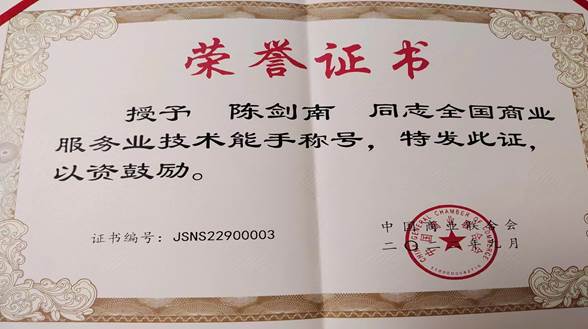 荣誉证书
授予 陈剑南 同志全国商业
服务业技术能手称号，特发此证，
以资鼓励。
证书编号：JSNS22900003
中国商业联合会
二〇二 年九月
GENERAL CHAMBER OF COMMERCE